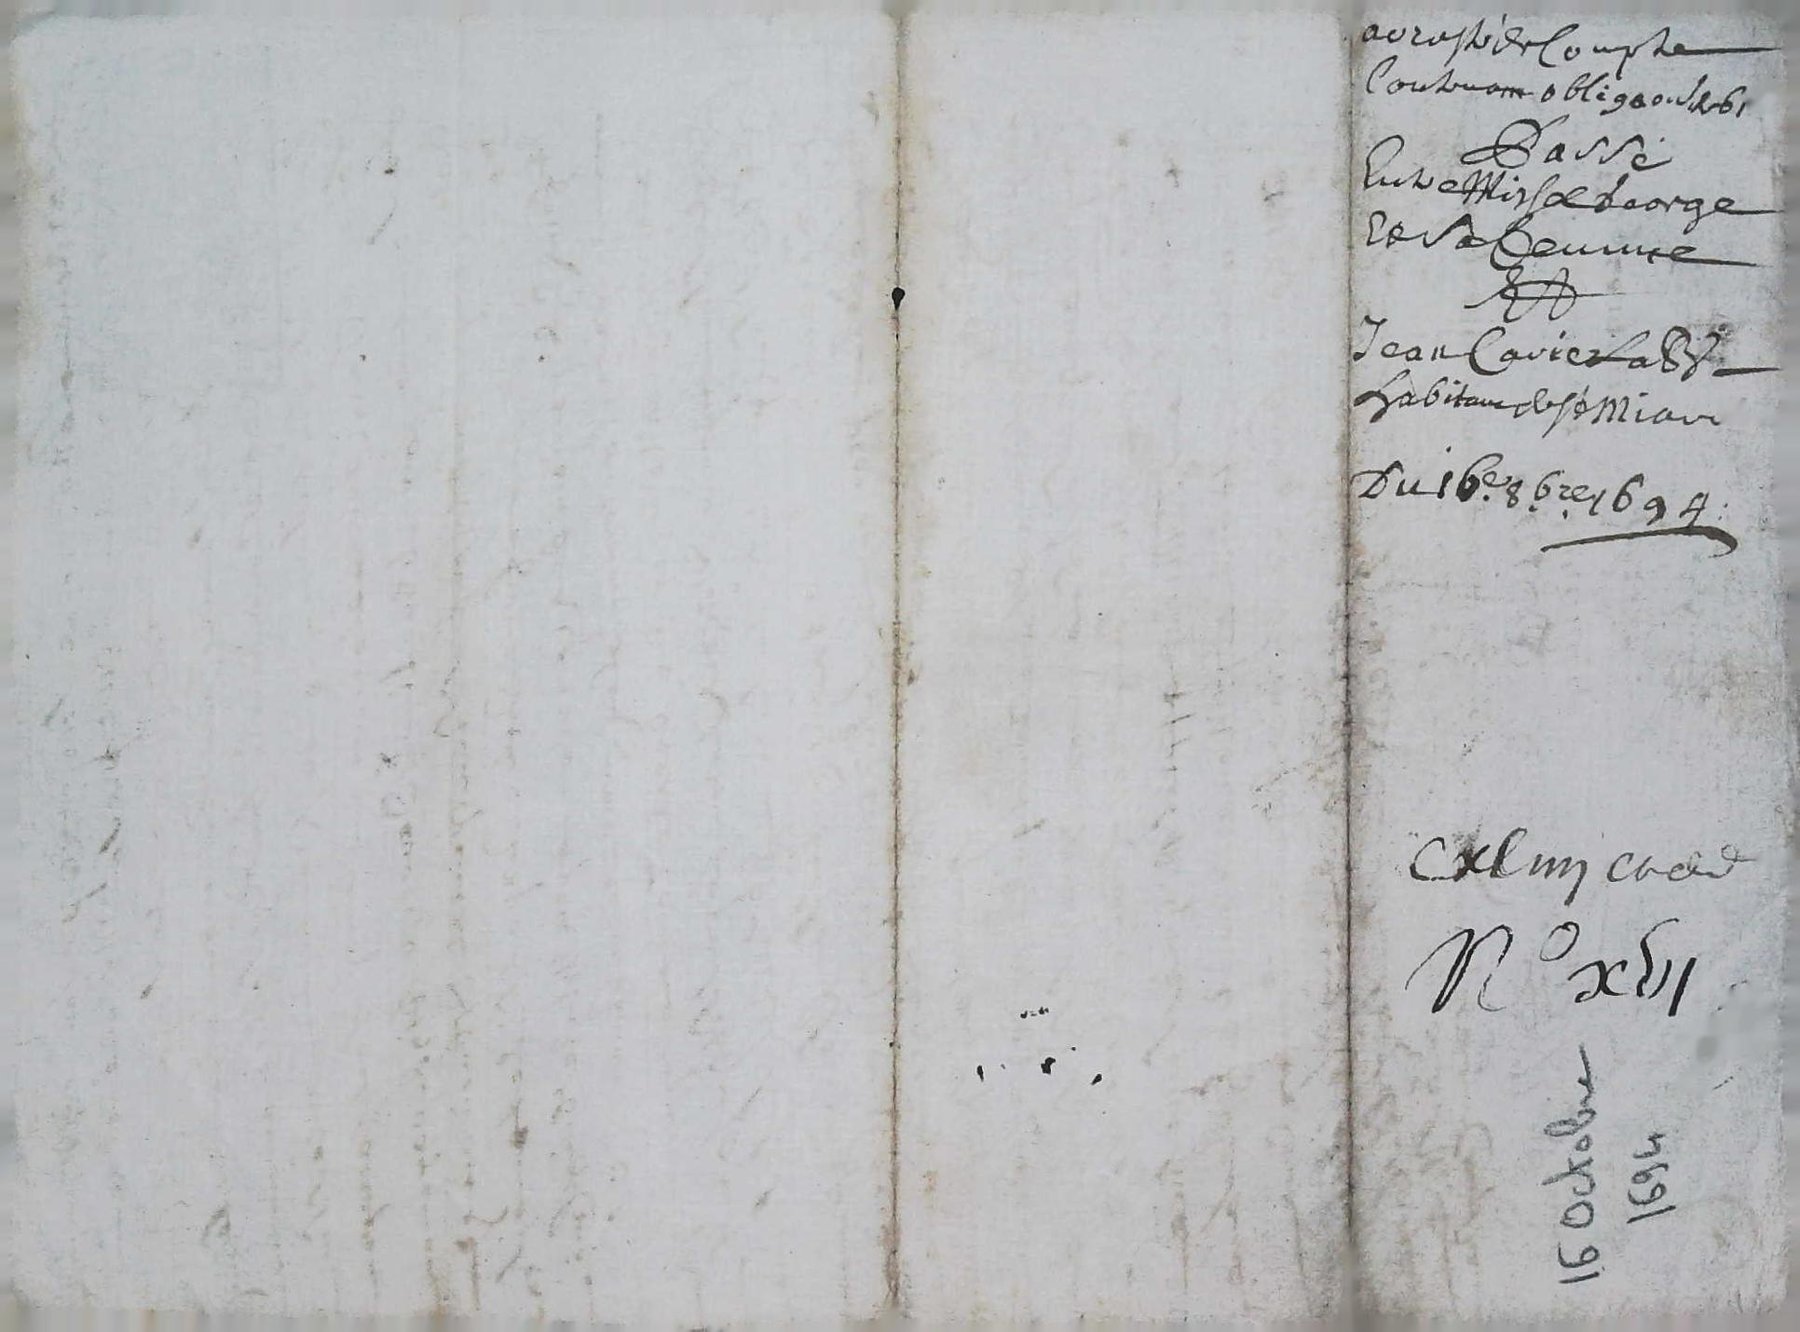 arresté de Compte
Contenant obligaon de 61
Passé
Entre Missel George
Et sa femme
Et
Jean Cavier
habitant de st Miau
Du 16e. 8bre. 1694
cxliiij
No xvii
16 Octobre
1694